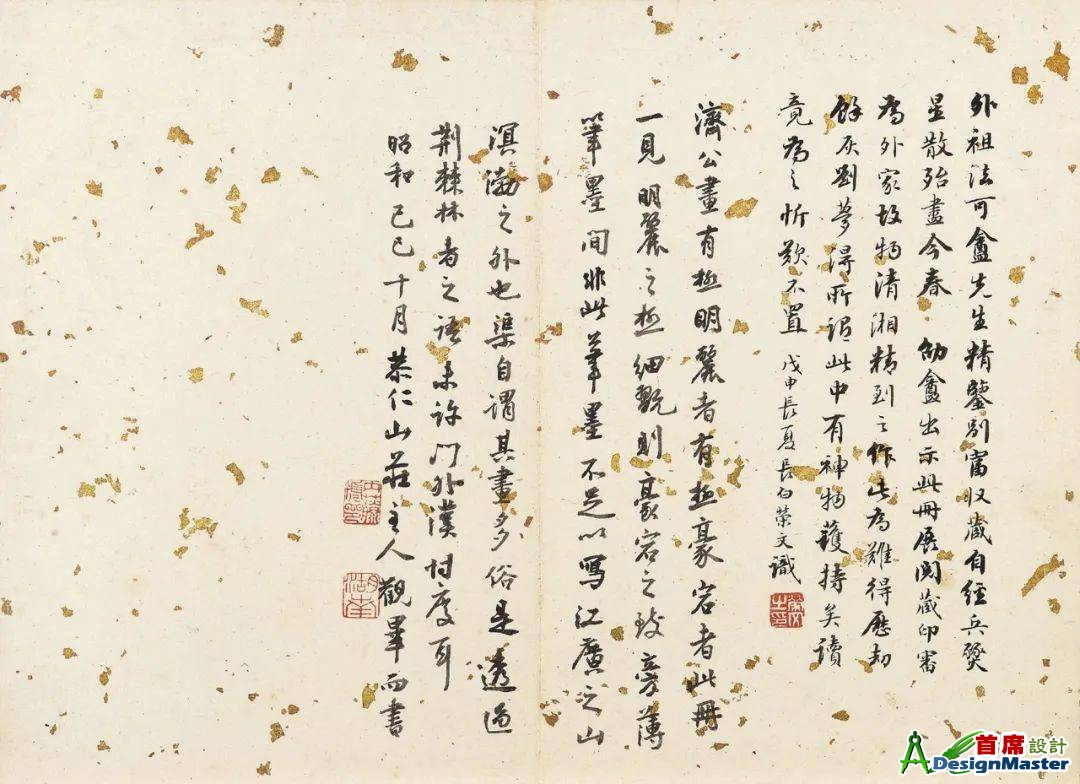 外祖法可盦先生精鑒別富收藏自經兵燹
星散殆盡今春 劬盦出示此冊展閱藏印審
為外家故物清湘精到之作此為難得歷劫
餘灰劉夢得所謂此中有神物護持矣讀
竟為之忻歎不置 戊申長夏長白榮文識
濟公畫有極明麗者有極豪宕者此冊
一見明麗之極細翫則豪宕之致旁薄
筆墨間非此筆墨不足以寫江廣之山
溟渤之外也渠自謂其畫多俗是透過
荆棘林者之語未許門外漢忖度耳
昭和己巳十月恭仁山莊主人觀畢而書
首席設計
DesignMaster